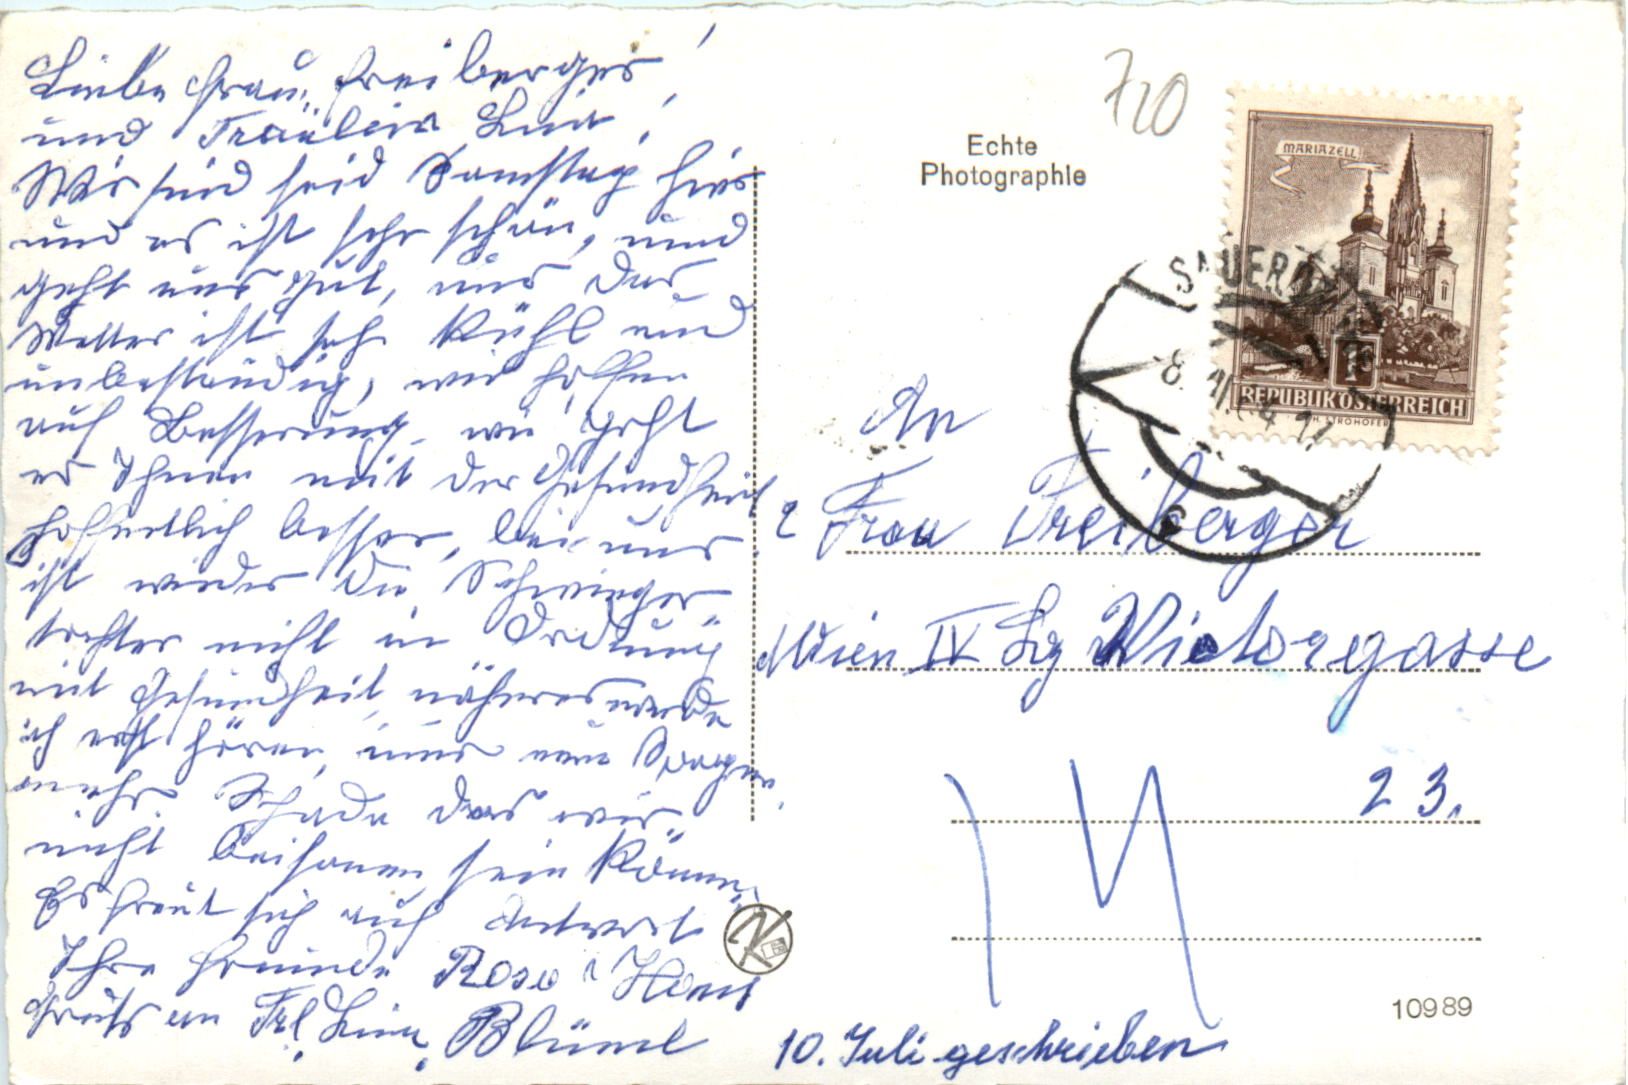 Liebe Frau Freiberger!
und Fräulein Lina!
Wir sind seid Samstag hier
und es ist sehr schön, und
geht uns gut, nur das
Wetter ist sehr kühl und
unbeständig, wir hoffen
auf Besserung. wie geht
es Ihnen mit der Gesundheit
hoffentlich besser, bei uns
ist wieder die Schwieger-
tochter nicht in Ordnung
mit Gesundheit, näheres werde
ich erst hören, nur neue Sorgen
mehr. Schade das wir
nicht beisamen sein können
Es freut sich auf Antwort
Ihre Freunde Rosa Hans
Gruß an Frl. Lina, Blüml
Echte
Photographie
720
MARIAZELL
REPUBLIK ÖSTERREICH
An
Frau Freiberger
Wien IV Wiktorgasse
23.
10989
10. Juli geschrieben